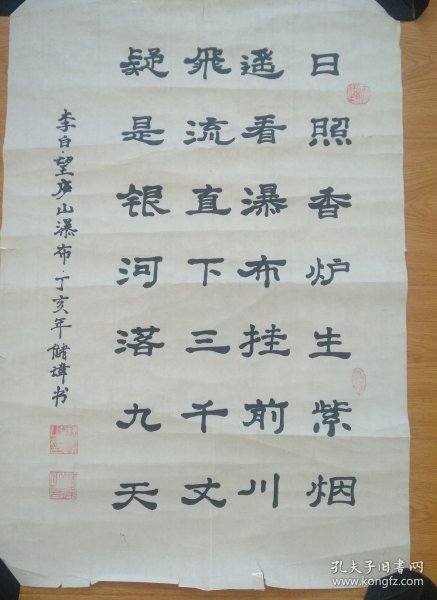 日照香炉生紫烟
遥看瀑布挂前川
飛流直下三千丈
疑是银河落九天
李白·望庐山瀑布·丁亥年储 书
孔夫子旧书网
www.kongfz.com